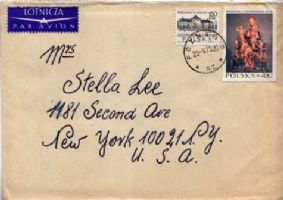 LOTNICZA
PAR AVION
Mrs
Stella Lee
1181 Second Ave
New York 10021 N.Y.
U. S. A.
POLSKA